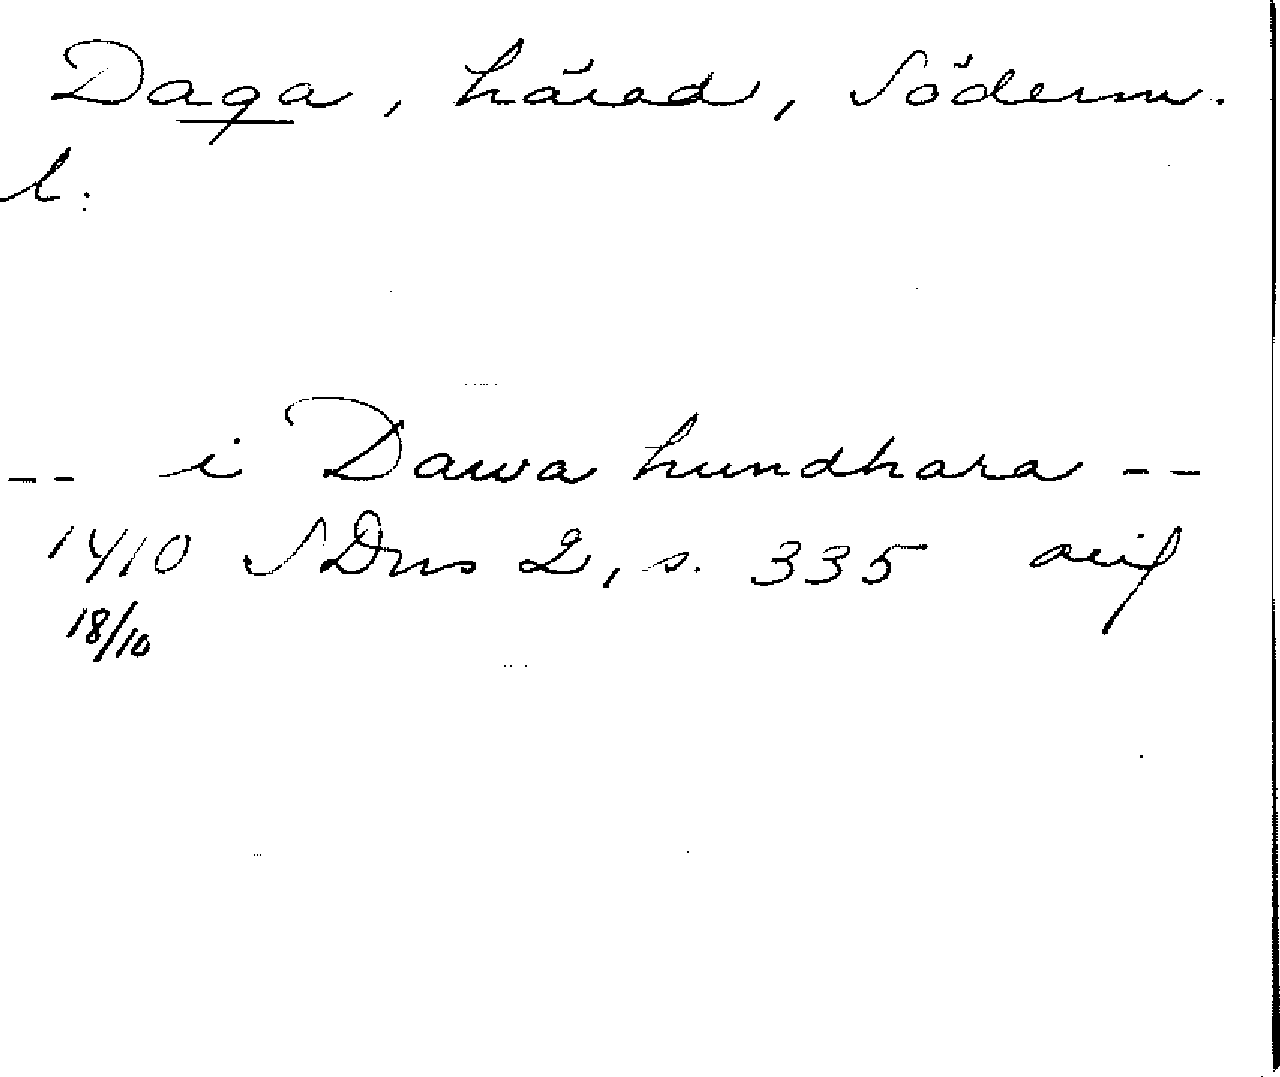 Daga, härad, Söderm.
l.
-- i Dawa hundhara --
1410 SDns 2, s. 335 orig
18/10